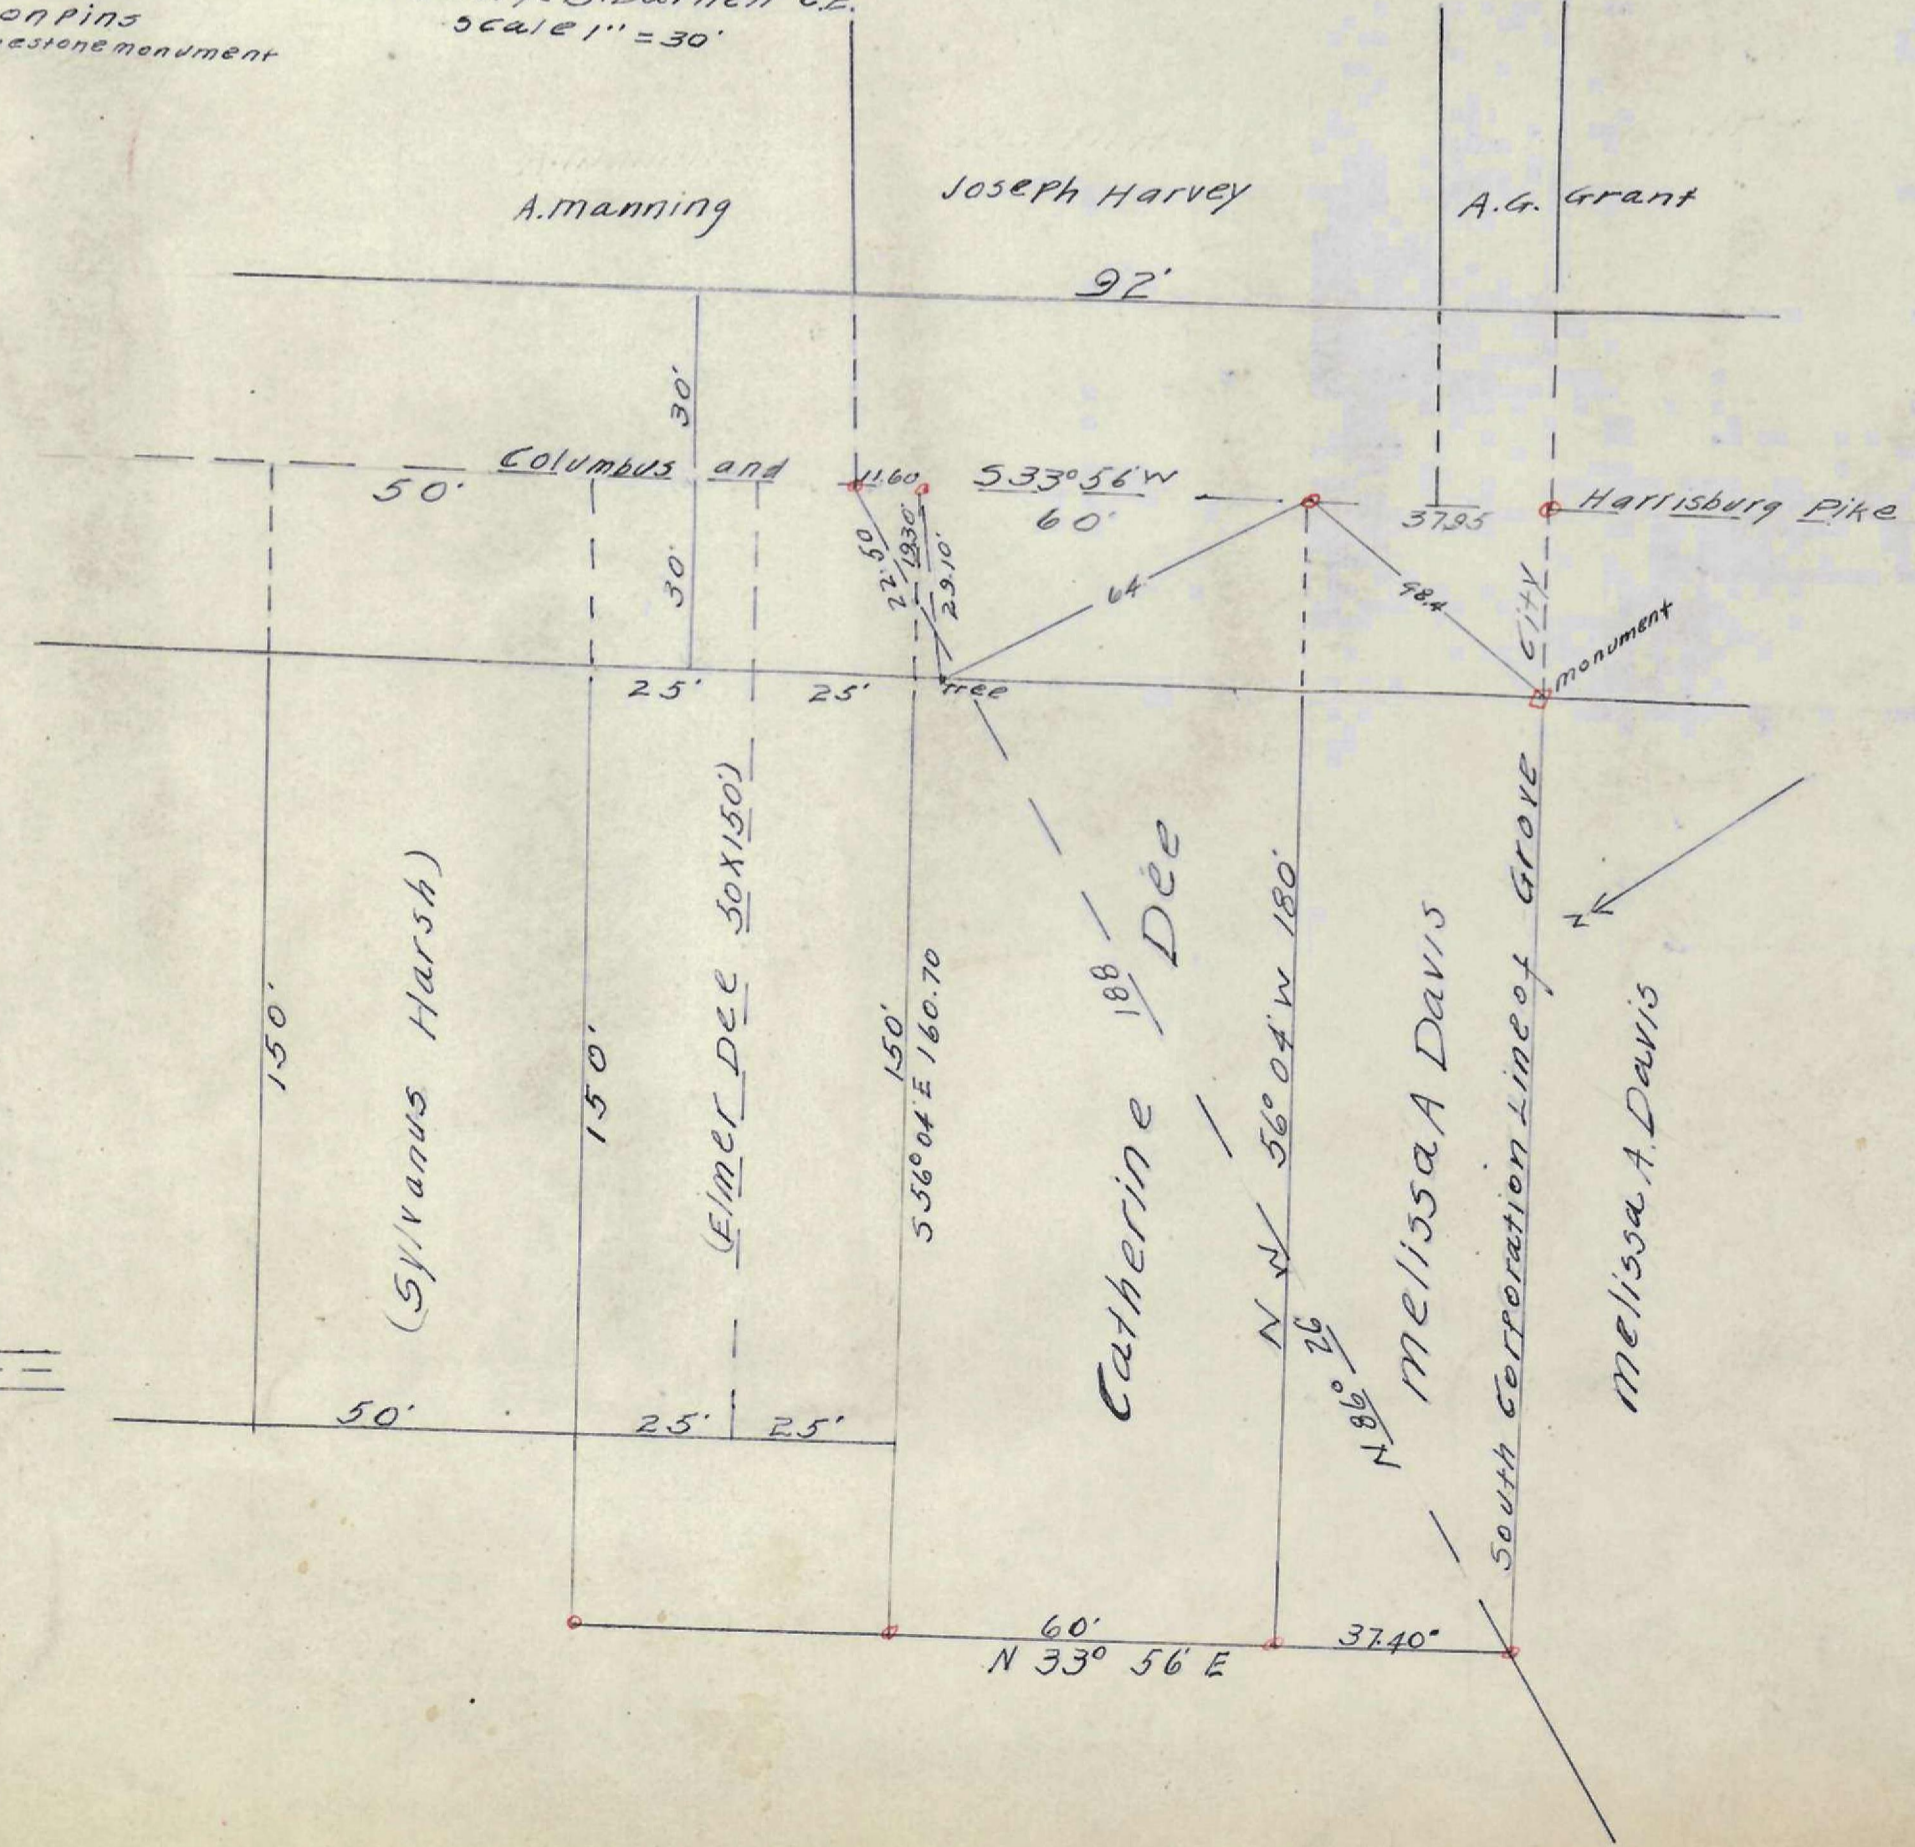 on pins
estone monument
scale 1" = 30'
A. Manning
Joseph Harvey
A.G. Grant
92'
30'
Columbus and
50'
11.60
S 33° 56' W
60'
37.95
Harrisburg Pike
30'
22.50
19.30'
29.10'
64
98.4
City
monument
25'
25'
Tree
(Sylvanus Harsh)
150'
150'
(Elmer Dee 50X150')
150'
S 56° 04' E 160.70
Catherine Dee
188
N 56° 04' W 180'
N
N 86° 26
W
Melissa A Davis
South Corporation Line of Grove
Melissa A. Davis
N
50'
25'
25'
60'
N 33° 56' E
37.40"